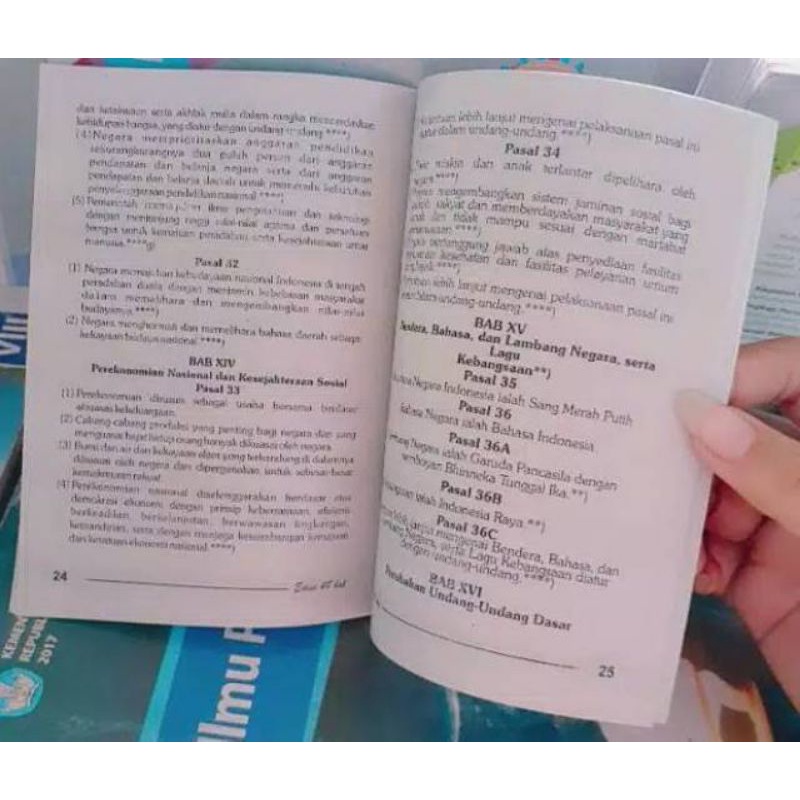 dan ketakwaan serta akhlak mulia dalam rangka mencerdaskan
kehidupan bangsa, yang diatur dengan undang-undang ****)
(4) Negara memprioritaskan anggaran pendidikan
sekurang-kurangnya dua puluh persen dari anggaran
pendapatan dan belanja negara serta dari anggaran
pendapatan dan belanja daerah untuk memenuhi kebutuhan
penyelenggaraan pendidikan nasional ****)
(5) Pemerintah ilmu pengetahuan dan teknologi
dengan menjunjung tinggi nilai-nilai agama dan persatuan
bangsa untuk kemajuan peradaban serta kesejahteraan umat
manusia.
Pasal 32
(1) Negara memajukan kebudayaan nasional Indonesia di tengah
peradaban dunia dengan menjamin kebebasan masyarakat
dalam memelihara dan mengembangkan nilai-nilai
budayanya ****)
(2) Negara menghormati dan memelihara bahasa daerah sebagai
kekayaan budaya nasional ****)
BAB XIV
Perekonomian Nasional dan Kesejahteraan Sosial
Pasal 33
(1) Perekonomian disusun sebagai usaha bersama berdasar
atas asas kekeluargaan.
(2) Cabang-cabang produksi yang penting bagi negara dan yang
menguasai hajat hidup orang banyak dikuasai oleh negara.
(3) Bumi dan air dan kekayaan alam yang terkandung di dalamnya
dikuasai oleh negara dan dipergunakan untuk sebesar-besar
kemakmuran rakyat.
(4) Perekonomian nasional diselenggarakan berdasar atas
demokrasi ekonomi dengan prinsip kebersamaan, efisiensi
berkeadilan, berkelanjutan, berwawasan lingkungan,
kemandirian, serta dengan menjaga keseimbangan kemajuan
dan kesatuan ekonomi nasional. ****)
24
lebih lanjut mengenai pelaksanaan pasal ini
diatur dalam undang-undang. ****)
Pasal 34
miskin dan anak terlantar dipelihara oleh
****)
mengembangkan sistem jaminan sosial bagi
rakyat dan memberdayakan masyarakat yang
dan tidak mampu sesuai dengan martabat
****)
bertanggung jawab atas penyediaan fasilitas
kesehatan dan fasilitas pelayanan umum
****)
lebih lanjut mengenai pelaksanaan pasal ini
undang-undang. ****)
BAB XV
Bendera, Bahasa, dan Lambang Negara, serta
Lagu
Kebangsaan**)
Pasal 35
Negara Indonesia ialah Sang Merah Putih
Pasal 36
Bahasa Negara ialah Bahasa Indonesia
Pasal 36A
Negara ialah Garuda Pancasila dengan
semboyan Bhinneka Tunggal Ika.**)
Pasal 36B
ialah Indonesia Raya.**)
Pasal 36C
mengenai Bendera, Bahasa, dan
Negara, serta Lagu Kebangsaan diatur
dengan undang-undang.
BAB XVI
Perubahan Undang-Undang Dasar
25
VIII
KEMEN
REPUBL
2017
Ilmu P